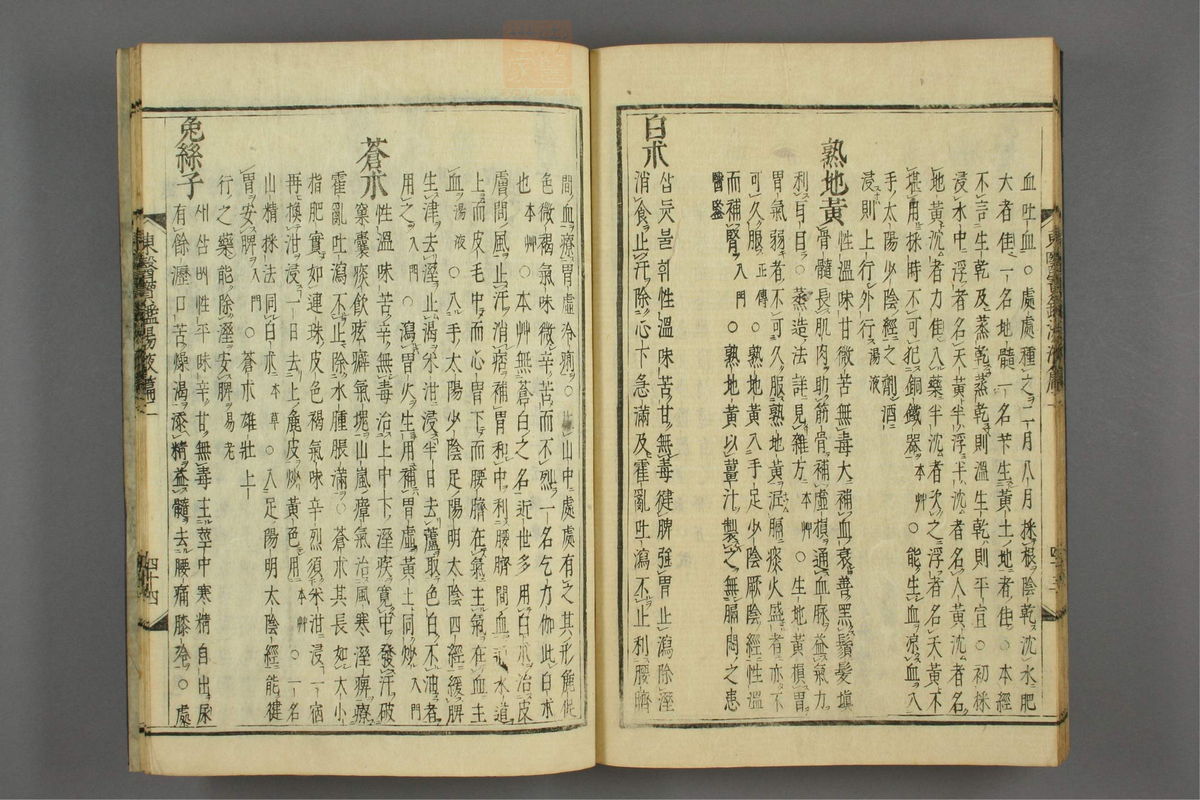 血吐血○處處種之二月八月採根陰乾沈水肥
大者佳一名地髓一名芐生黃土地者佳○本經
不言生乾及蒸乾蒸乾則溫生乾則平宜○初採
浸水中浮者名天黃半浮半沈者名人黃沈者名
地黃沈者力佳入藥半沈者次之浮者名天黃不
堪用採時不可犯銅鐵器本艸○能生血凉血入
手太陽少陰經之劑酒
浸則上行外行湯液
熟地黃
性溫味甘微苦無毒大補血衰善黑鬚髮塡
骨髓長肌肉助筋骨補虛損通血脉益氣力
利耳目○蒸造法詳見雜方本艸○生地黃損胃
胃氣弱者不可久服熟地黃泥膈痰火盛者亦不
可久服正傳○熟地黃入手足少陰厥陰經性溫
而補腎入門○熟地黃以薑汁製之無膈悶之患
醫鑑
白朮
삽듓불휘性溫味苦甘無毒健脾強胃止瀉除溼
消食止汗除心下急滿及霍亂吐瀉不止利腰臍
間血療胃虛冷痢○山中處處有之其形麄
色微褐氣味微辛苦而不烈一名乞力伽此白朮
也本艸○本艸無蒼白之名近世多用白朮治皮
膚間風止汗消痞補胃和中利腰臍間血通水道
上而皮毛中而心胃下而腰臍在氣主氣在血主
血湯液○入手太陽少陰足陽明太陰四經緩脾
生津去溼止渴米泔浸半日去蘆取色白不油者
用之入門○瀉胃火生用補胃虛黃土同炒入門
蒼朮
性溫味苦辛無毒治上中下溼疾寬中發汗破
窠囊痰飮痃癖氣塊山嵐瘴氣治風寒溼痺療
霍亂吐瀉不止除水腫脹滿○蒼朮其長如大小
指肥實如連珠皮色褐氣味辛烈須米泔浸一宿
再換泔浸一日去上麁皮炒黃色用本艸○一名
山精採法同白朮本草○入足陽明太陰經能健
胃安脾入門○蒼朮雄壯上
行之藥能除溼安脾易老
兔絲子
새삼씨性平味辛甘無毒主莖中寒精自出尿
有餘瀝口苦燥渴添精益髓去腰痛膝冷○處
東醫寶鑑湯液篇二
四十四